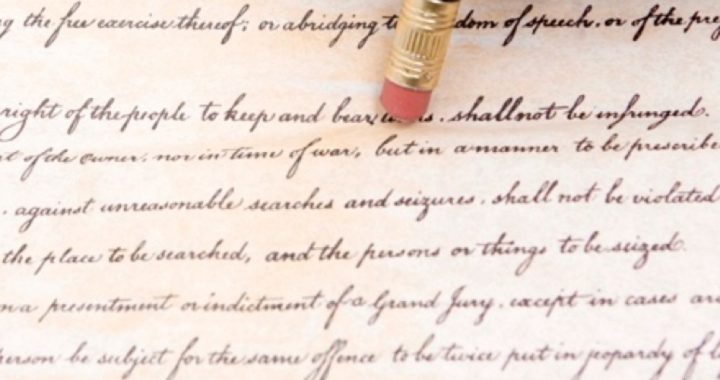 the free exercise thereof; or abridging dom of speech, or of the
right of the people to keep and bear . shall not be infringed.
of the Owner, nor in time of war, but in a manner to be prescribe
. against unreasonable searches and seizures, shall not be violated
the place to be searched, and the persons or things to be seized.
a presentment or indictment of a Grand Jury, except in cases
person be subject for the same offence to be twice put in jeopardy of